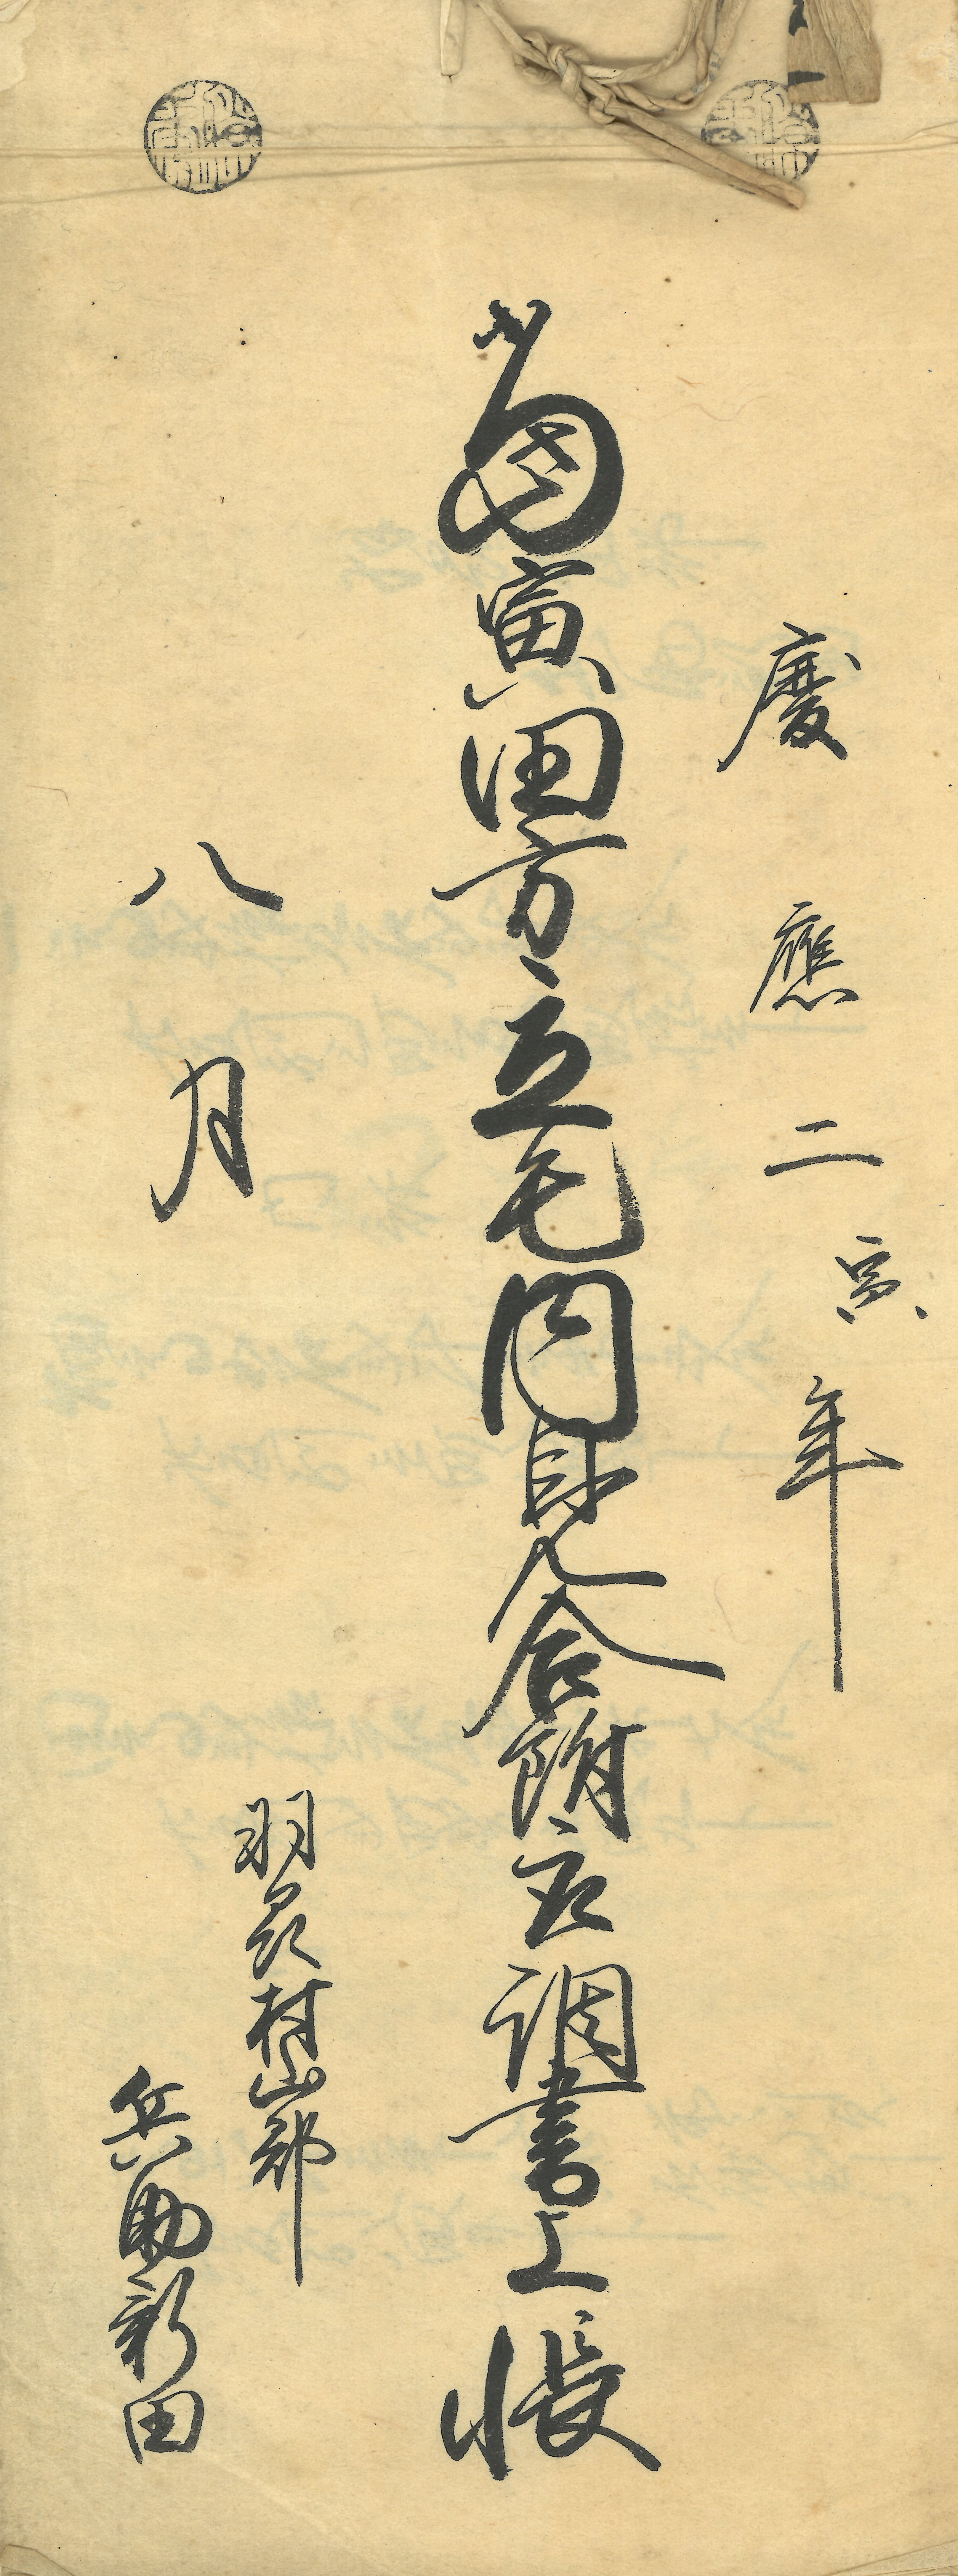 慶應二寅年
當寅田方立毛内見合附取調書上帳
八月
羽州村山郡
兵助新田